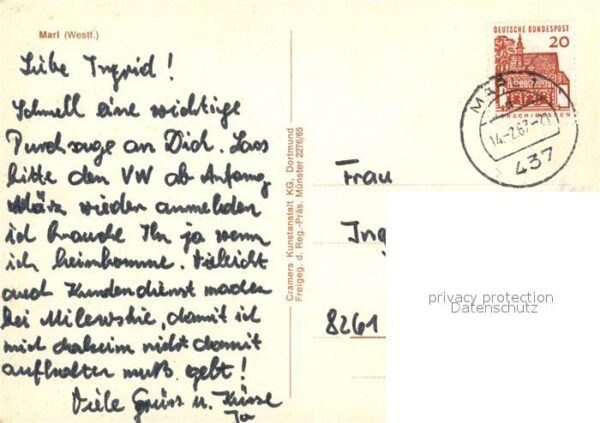 Marl (Westf.)
Liebe Ingrid!
Schnell eine wichtige
Durchsage an Dich. Lass
bitte den VW ab Anfang
März wieder anmelden
ich brauche ihn ja wenn
ich heimkomme. Vieleicht
auch Kundendienst machen
bei Milewskie, damit ich
mich daheim nicht damit
aufhalten muß. gebt!
Viele Grüss u. Küsse
Cramers Kunstanstalt KG, Dortmund
Freigeg. d. Reg.-Präs. Münster 2276/65
DEUTSCHE BUNDESPOST
20
LORSCH/HESSEN
MARL
14.-2.67-21
437
Frau
Ing
8261
privacy protection
Datenschutz